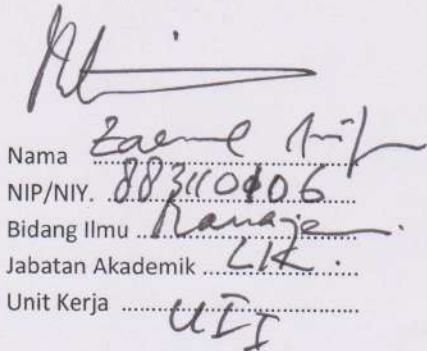 Nama Zaenal Arifin
NIP/NIY. 883110106
Bidang Ilmu Manajemen
Jabatan Akademik LK.
Unit Kerja UII